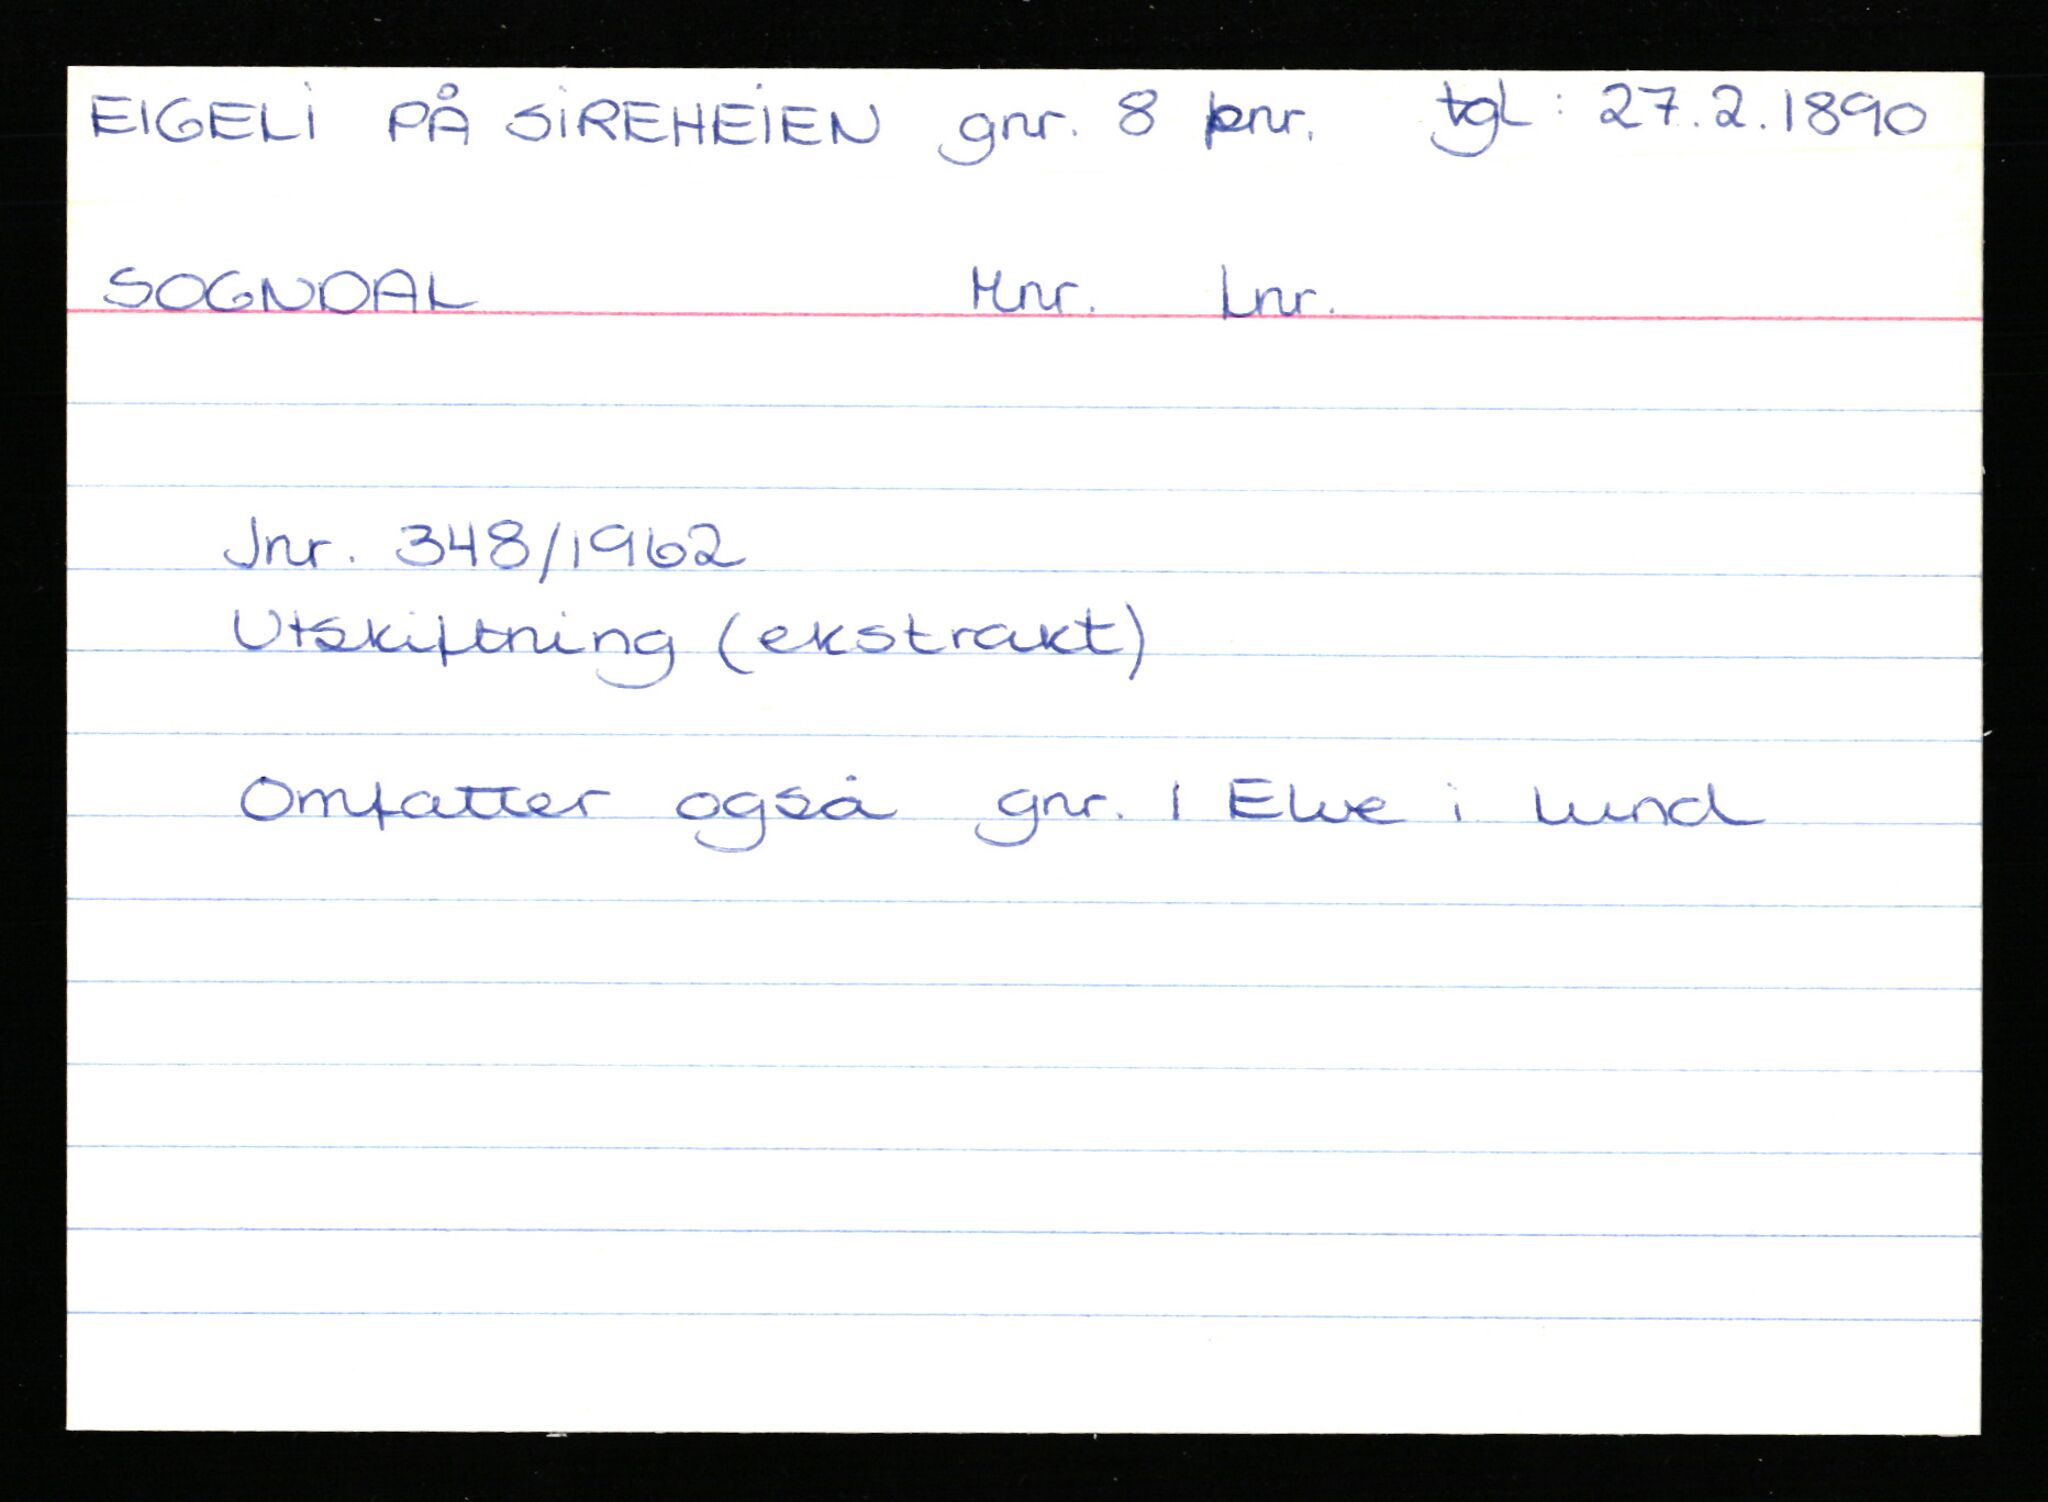 EIGELI PÅ SIREHEIEN gnr. 8 bnr. tgl: 27.2.1890
SOGNDAL Mnr. Lnr.
Jnr. 348/1962
Utskiftning (ekstrakt)
Omfatter også gnr. 1 Eive i Lund